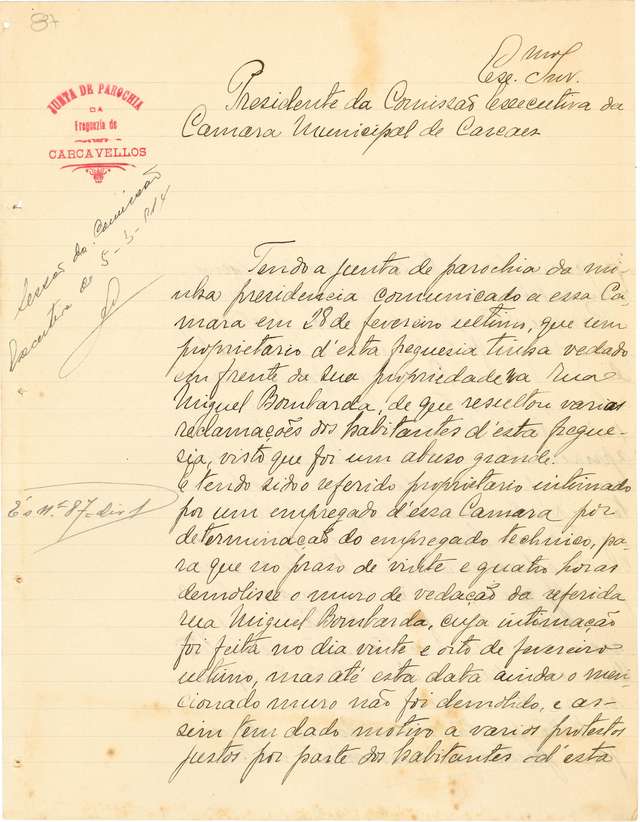 87
JUNTA DE PAROCHIA
DA
Freguezia de
CARCAVELLOS
Exmo
Snr.
Presidente da Comissão Executiva da
Camara Municipal de Cascaes
Sessão da Comissão
Executiva de 5-3-914
Tendo a junta de parochia da mi-
nha presidencia comunicado a essa Ca-
mara em 28 de fevereiro ultimo, que um
proprietario d'esta freguesia tinha vedado
em frente da sua propriedade na rua
Miguel Bombarda, de que resultou varias
reclamações dos habitantes d'esta fregue-
sia, visto que foi um abuso grande.
E tendo sido o referido proprietario intimado
É o nº 87
por um empregado d'essa Camara por
determinação do empregado technico, pa-
ra que no praso de vinte e quatro horas
demolisse o muro de vedação da referida
rua Miguel Bombarda, cuja intimação
foi feita no dia vinte e oito de fevereiro
ultimo, mas até esta data ainda o men-
cionado muro não foi demolido, e as-
sim tem dado motivo a varios protestos
justos por parte dos habitantes d'esta